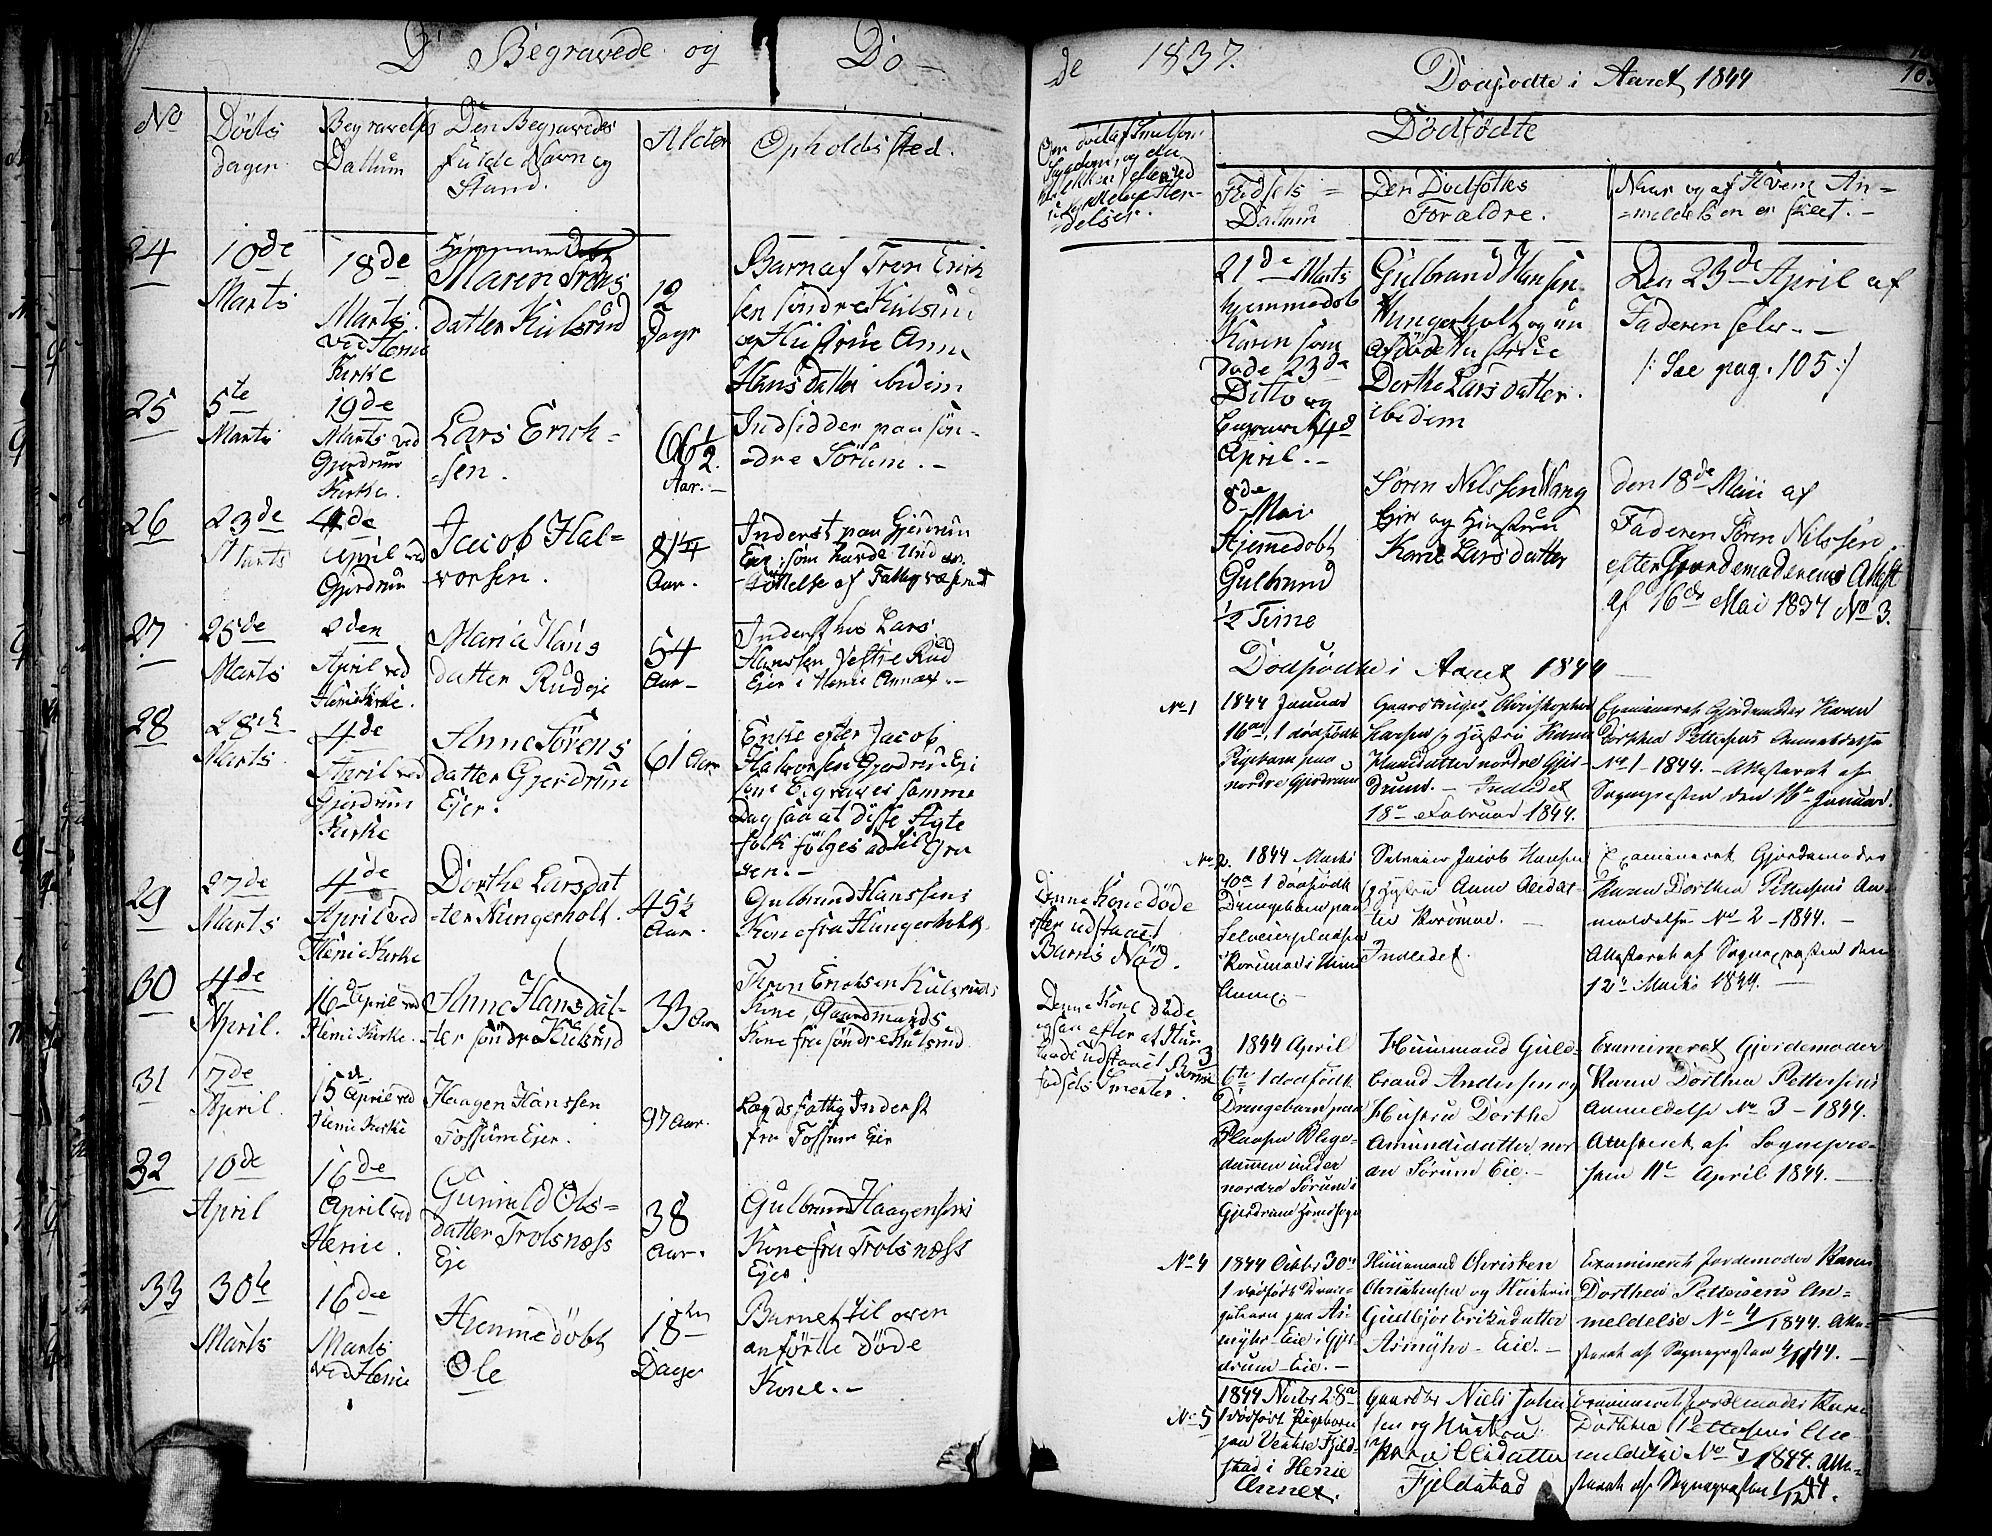 D Begravede og Dö-
No
Döds
dagen
Begravelses
Dattum
Den Begravedes
fulde Navn og
Stand.
Alder
Opholdssted.
24
10de
Marts
18de
Marts
ved Henie
Kirke
Maren Trons
datter Kulsrud
12
Dage
Barn af Tron Erich
sen söndre Kulsrud
og Hustrue Anne
Hansdatter ibidem
25
5te
Marts
19de
Marts ved
Gjerdrum
Kirke.
Lars Erich-
-sen.
66 1/2
Aar.-
Indsidder paa sön-
-dre Sörum.-
26
23de
Marts
4de
April ved
Gjerdrum
Jacob Hal-
vorsen.
81
Aar.
Inderst paa Gjerdrum
Eje som havde Und er-
-stöttelse af Fattigvæsenet
27
25de
Marts
2den
April ved
Henie Kirke.
Maria Hans
datter Rudeje
54
Aar-
Inderst hos Lars
Hanssen Vestre Rud
Ejer i Henie Annex.-
28
28de
Marts.
4de
April ved
Gjerdrum
Kirke
Anne Sörens
datter Gjerdrum
Ejer.
61 Aar
Enke efter Jacob
Halvorsen Gjerdrum Eje
som Begraves samme
Dag saa at disse Ægte
folk fölges ad til Gra
ven.-
29
27de
Marts
4de
April ved
Henie Kirke
Dorthe Larsdat
-ter Hungerholt.
45 1/2
Aar.
Gulbrand Hanssens
Kone fra Hungerholt.
30
4de
April.
16de April ved
Henie Kirke.
Anne Hansdat-
-ter söndre Kulsrud
33 Aar
Thron Erichsen Kulsruds
Kone, Gaardmands
Kone fra söndre Kulsrud
31
7de
April.
15de April ved
Henie Kirke
Haagen Hanssen
Fossum Ejer.
97 Aar.
Lægdsfattig Inderst
fra Fossum Eje
32
10de
April
16de
April ved
Henie.
Gunild Ols-
datter Trolsnæss
Eje
38
Aar.
Gulbrand Haagensens
Kone fra Trolsnæss
Ejer.
33
30te
Marts
16de
Marts
ved Henie
Hjemmedöbt
Ole
18ten
Dage
Barnet til oven
anförtte döde
Kone.-
de 1837.
Dodfodte i Aaret 1844
Dödfödte
Födsels-
Dattum
Den Dodfödtes
Foraldre.
Naar og af Hvem An-
-meldelsen er skeet.-
21de Marts
hjemmedöbt
Karen som
döde 23de
Ditto og
begravet 4de
April.-
Gulbrand Hansen
Hungerholt og nu
afdöde Hustrue
Dorthe Larsdatter.
ibidem
Den 23de April af
Faderen selv.-
/: See pag. 105 :/
8de
Mai
Hjemmedöbt
Gulbrand
1/2 Time
Sören Nilssen Vang
Ejer og Hustrue
Karie Larsdatter
den 18de Maii af
Faderen Sören Nilssen.
efter Gjordemoderens Attest
af 16de Mai 1837 No 3.
Dodfodte i Aaret 1844
No 1
1844 Januar
16de 1 dödfödt
Pigebarn paa
nordre Gjerdrum
Gaardbruger Christopher
Hansen og Hustru Karen
Hansdatter nordre Gjer-
drum.- Indledet
18de Februar 1844.
Examineret Gjordemoder Karen
Dorthea Pettersens Anmeldelse
No 1-1844.- Attesteret af
Sognepresten den 16de Januar.
No 2.
1844 Marts
10de 1 dödfödt
Drengebarn paa
Selveierpladsen
i Henie
Annex.-
Selveier Jacob Hansen
og Hustru Anne Olesdat-
ter
Indledet.
Examineret Gjordemoder
Karen Dorthea Pettersens An-
meldelse No 2-1844.-
Attesteret af Sognepresten den
12te Marts 1844.-
Denne Kone döde
efter udstaaet
Barns Nöd.
Denne Kone döde
ogsaa efter at hun
havde udstaaet Barne
fødsels Smerter.
3
1844 April
6te 1 dödfödt
Drengebarn paa
Pladsen
under
nordre Sörum i
Gjerdrum Hovedsogn
Huusmand Guld-
brand Andersen og
Hustru Dorthe
Amundsdatter nor
dre Sörum Eie.-
Examineret Gjordemoder
Karen Dorthea Pettersens
Anmeldelse No 3-1844.
Attesteret af Sognepre-
sten 11te April 1844.-
No 4
1844 Octbr 30te
1 dödfödt Dren-
gebarn paa As-
myhr-Eie i Gjer
drum-Eie.-
Huusmand Christen
Christensen og Hustru
Gudbjör Eriksdatter
Asmyhr-Eie.-
Examineret Jordemoder Karen
Dorthea Pettersens An-
meldelse No 4/1844. Atte-
steret af Sognepresten 4/11 44.-
No 5
1844 Novbr 28de
1 dödfödt Pigebarn
paa Vestre Fjeld-
stad i Henie
Annex.
Gaardbr Niels Johan
sen og Hustru
Olesdatter
Fjeldstad
Examineret Jordemoder Karen
Dorthea Pettersens An-
meldelse No 5/1844. Atte-
steret af Sognepresten 1/12 44.